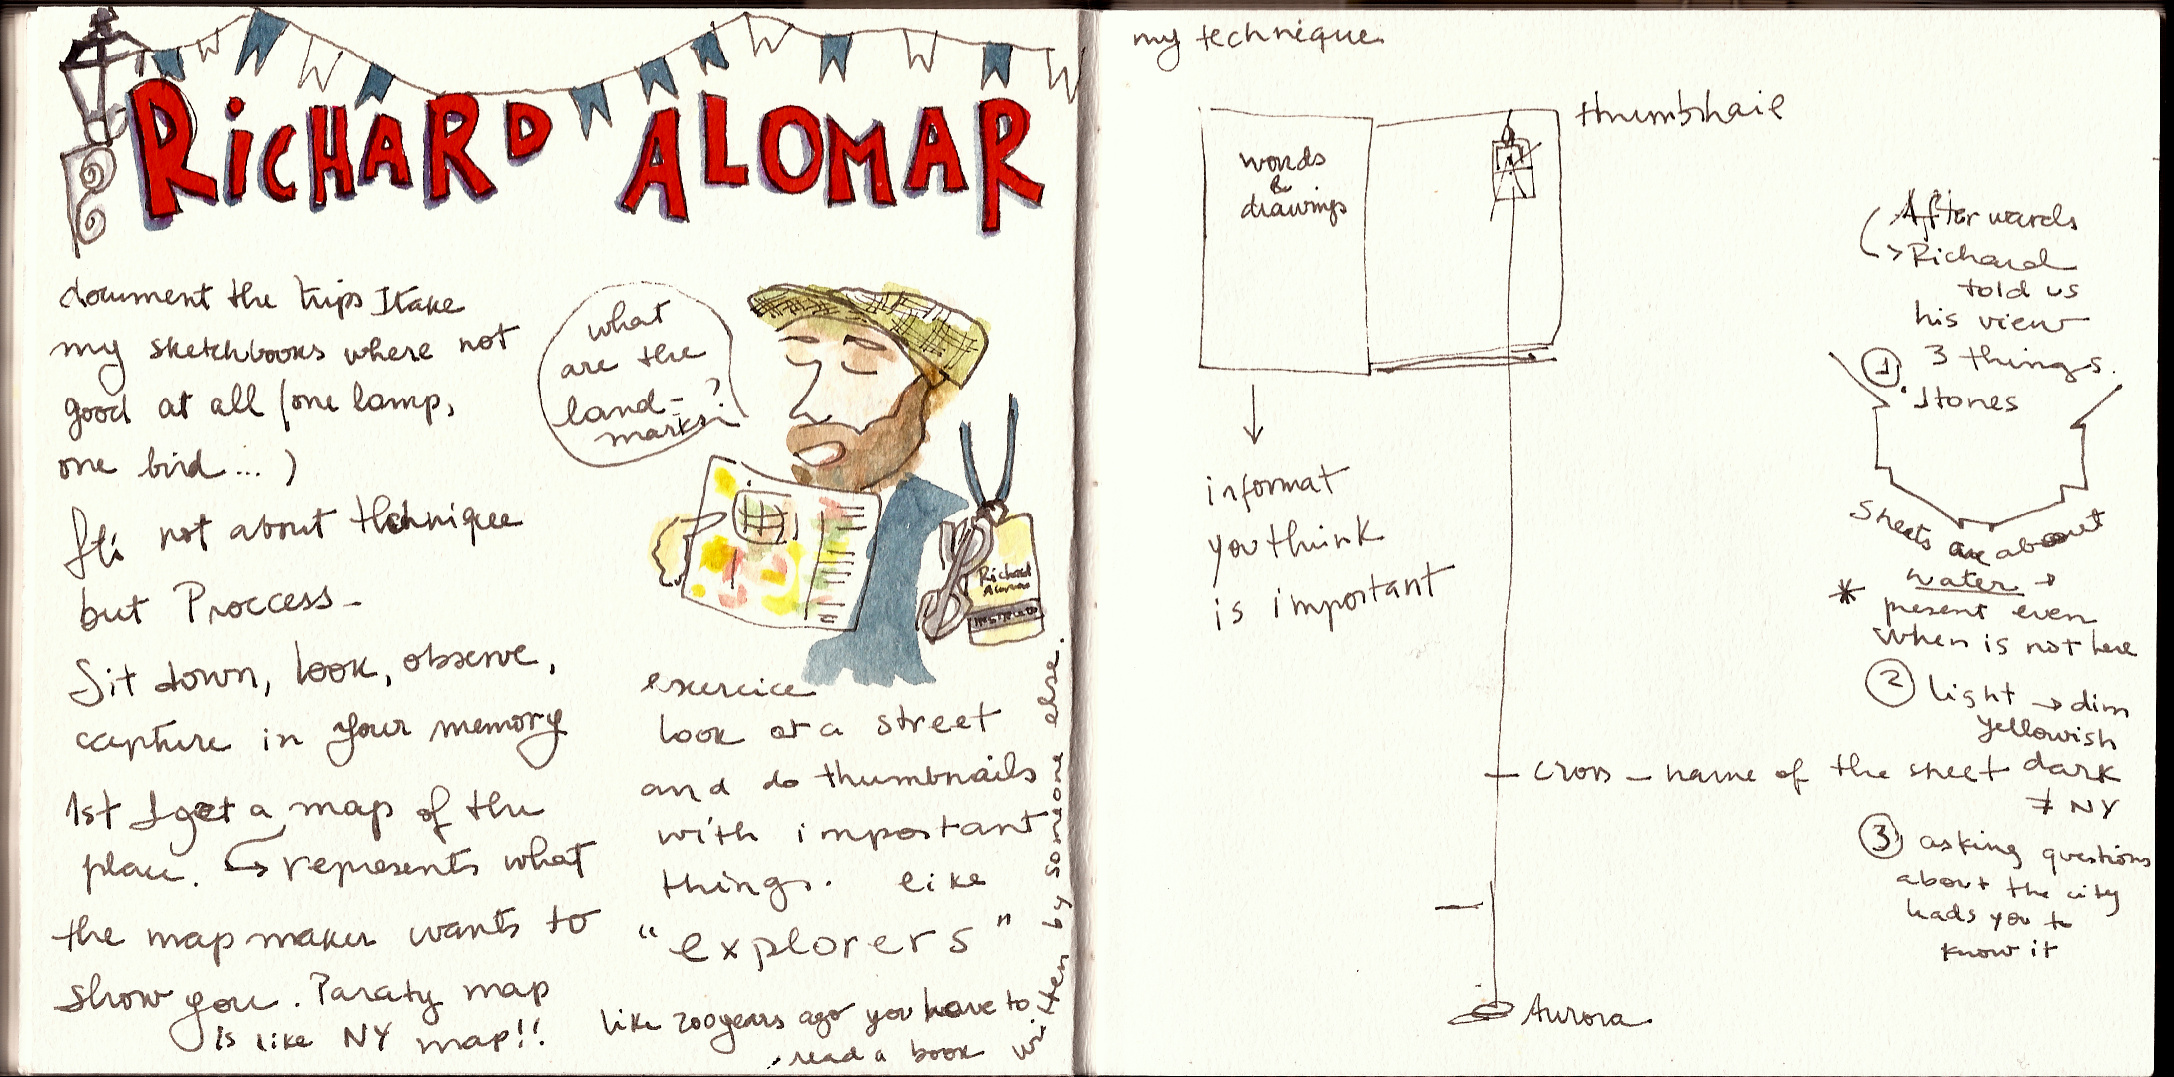 RiCHARD ALOMAR
document the trips I take
my sketchbooks where not
good at all (one lamp,
one bird ... )
not about thchnique
but Proccess -
Sit down, look, observe,
capture in your memory
1st I get a map of the
place. ↳ represents what
the map maker wants to
show you. Paraty map
Is like NY map!!
what
are the
land-
marks?
Richard
Alomar
exercice
look at a street
and do thumbnails
with important
things. like
"explorers"
like 200 years ago you have to
read a book
written by someone else.
my technique
words
&
drawings
thumbnail
informat
you think
is important
cross - name of the street
Aurora
Afterwards
→ Richard
told us
his view
3 things.
1 Stones
Streets are about
water →
* present even
when is not here
2 light → dim
yellowish
dark
≠ NY
3 asking questions
about the city
leads you to
know it